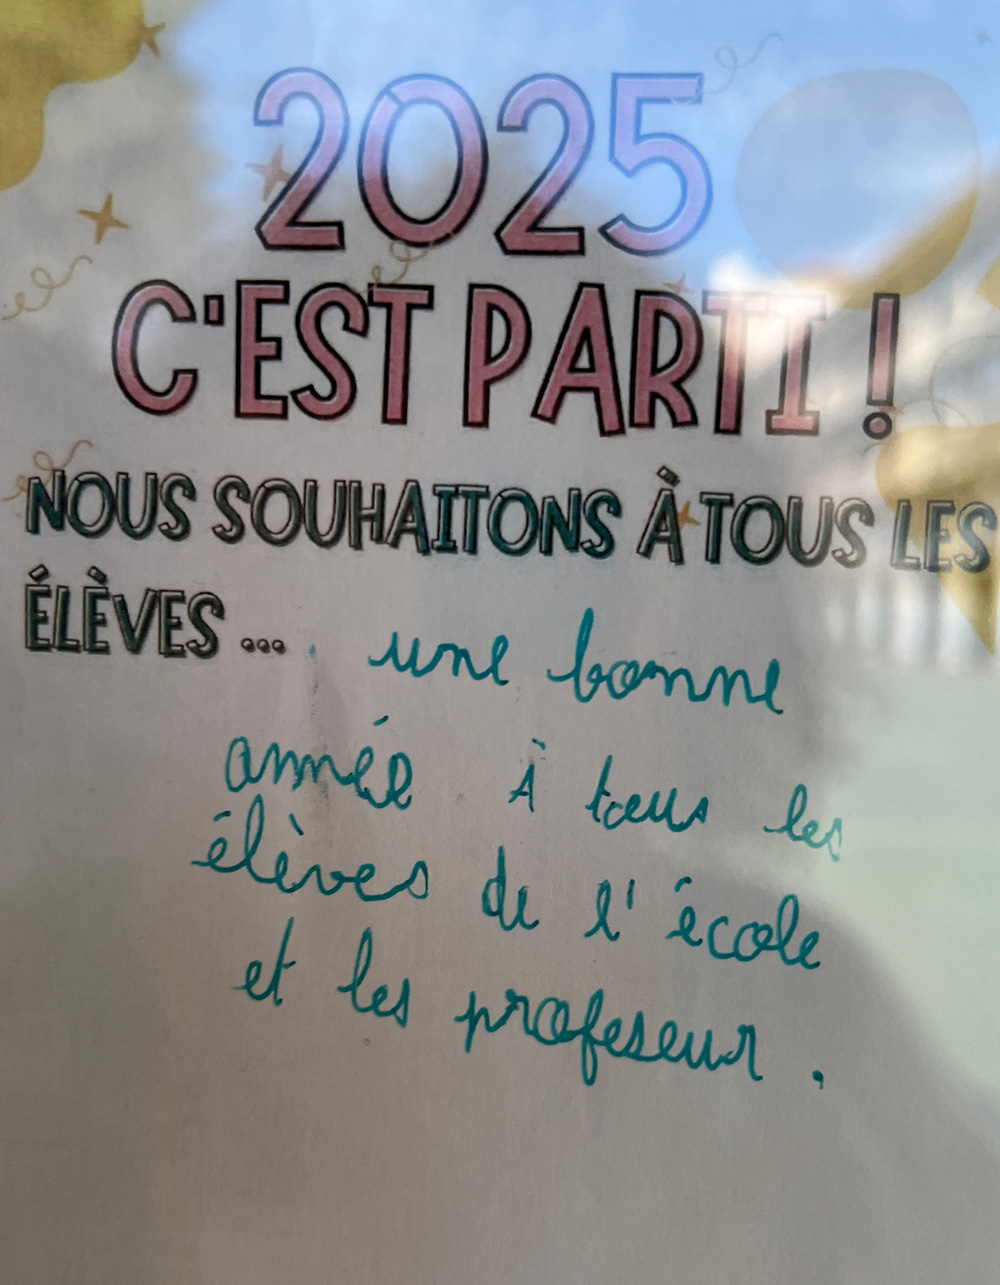 2025
C'EST PARTI !
NOUS SOUHAITONS À TOUS LES
ÉLÈVES ... une bonne
année à tous les
élèves de l'école
et les profeseur.